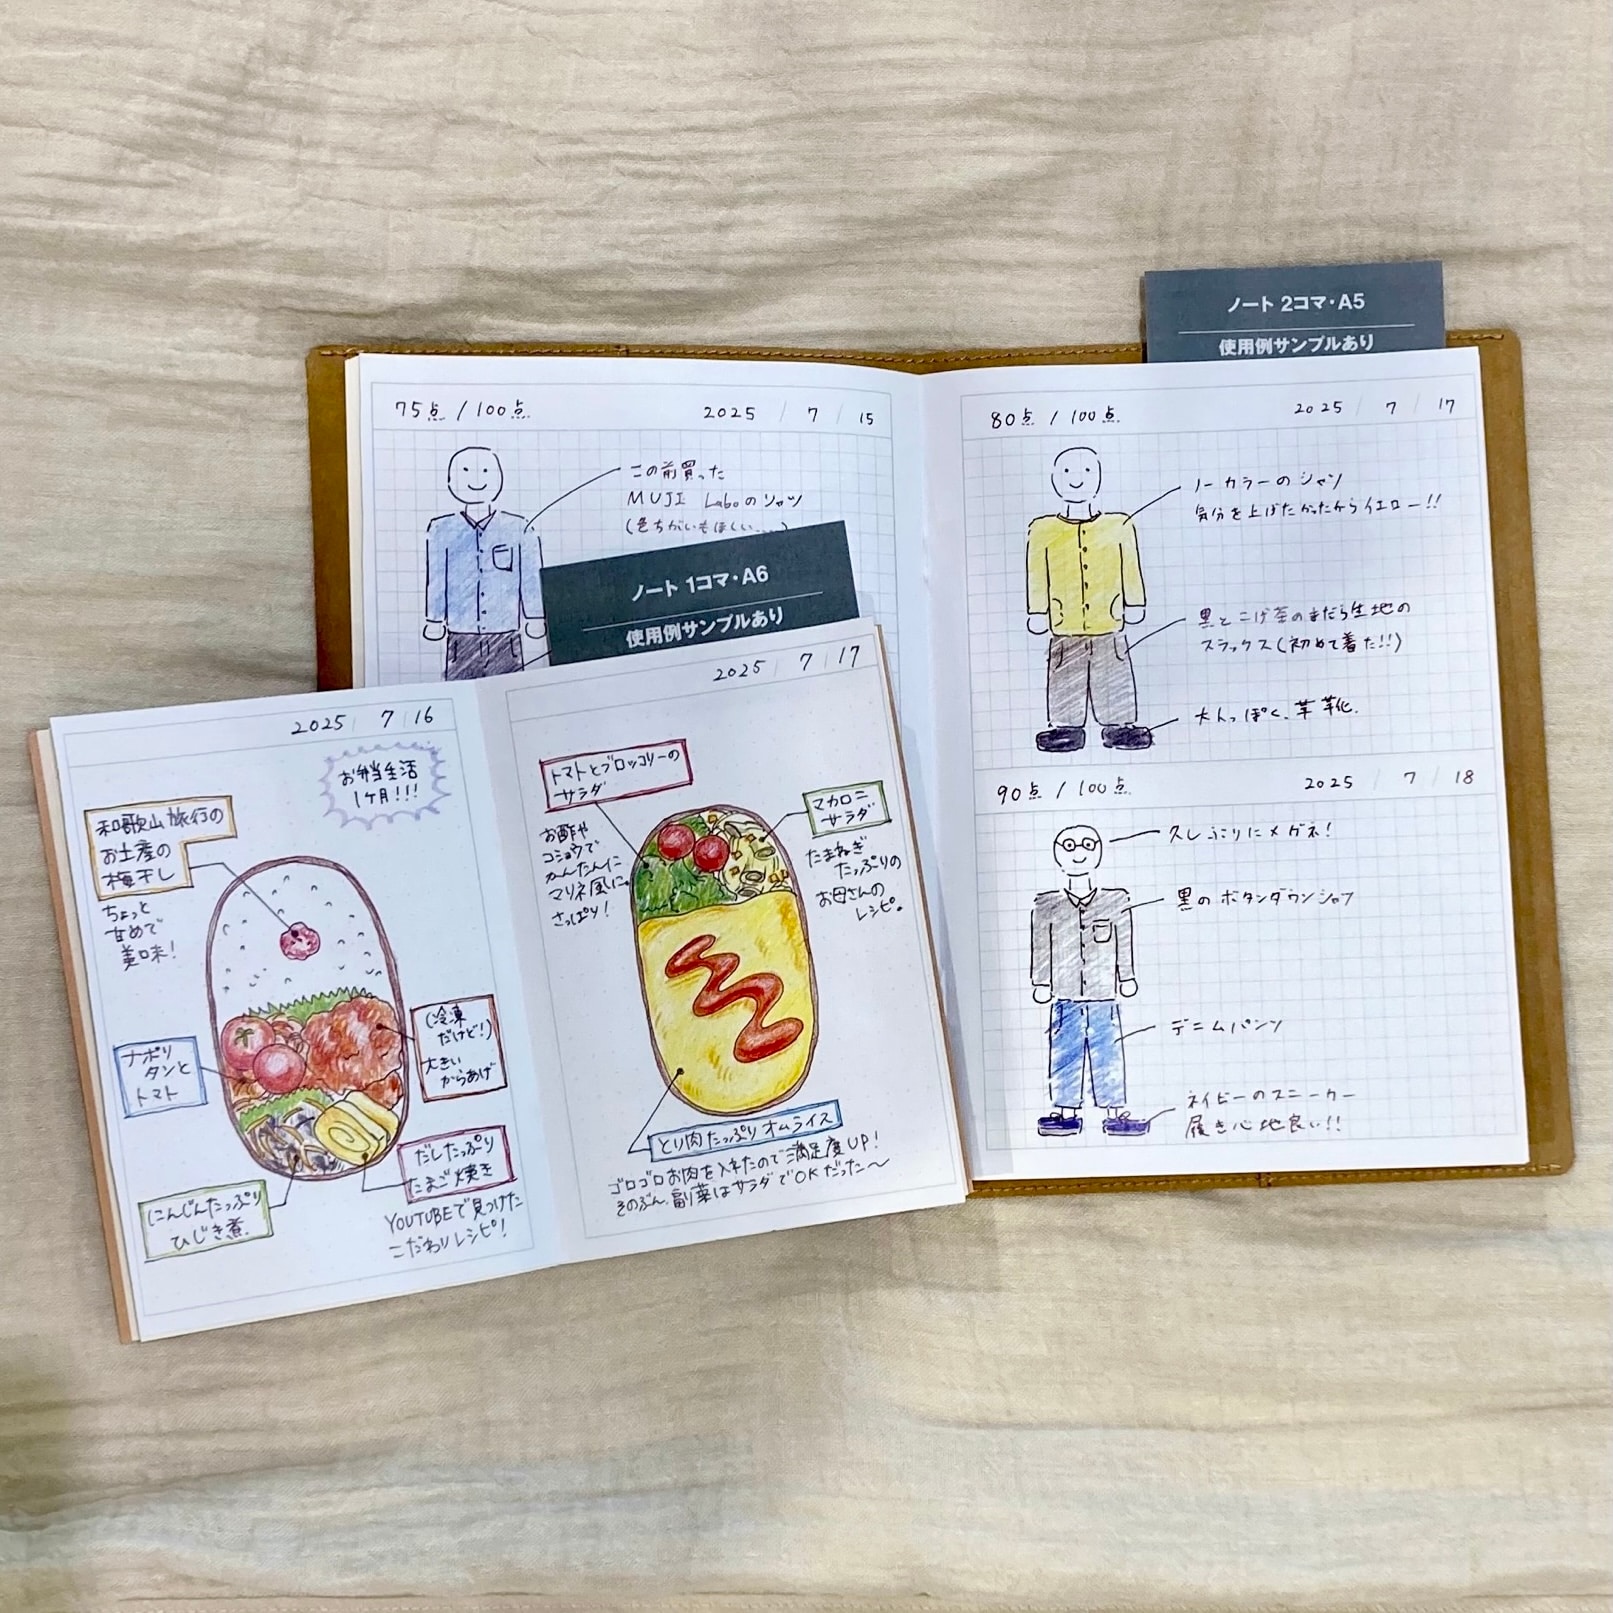 ノート 2コマ・A5
使用例サンプルあり
75点 / 100点
2025 / 7 / 15
この前買った
MUJI Laboのシャツ
(色ちがいもほしい....)
80点 / 100点
2025 / 7 / 17
ノーカラーのシャツ
気分を上げたかったからイエロー!!
黒とこげ茶のまだら生地の
スラックス(初めて着た!!)
大人っぽく、革靴.
90点 / 100点
2025 / 7 / 18
久しぶりにメガネ!
黒のボタンダウンシャツ
デニムパンツ
ネイビーのスニーカー
履き心地良い!!
ノート 1コマ・A6
使用例サンプルあり
2025 / 7 / 16
お弁当生活
1ヶ月!!!
和歌山旅行の
お土産の
梅干し
ちょっと
甘めで
美味!
ナポリ
タンと
トマト
(冷凍
だけど!)
大きい
からあげ
だしたっぷり
たまご焼き
YOUTUBEで見つけた
こだわりレシピ!
にんじんたっぷり
ひじき煮.
2025 / 7 / 17
トマトとブロッコリーの
サラダ
お酢や
コショウで
かんたんに
マリネ風に。
さっぱり!
マカロニ
サラダ
たまねぎ
たっぷりの
お母さんの
レシピ。
とり肉たっぷりオムライス
ゴロゴロお肉を入れたので満足度UP!
そのぶん、副菜はサラダでOKだった〜